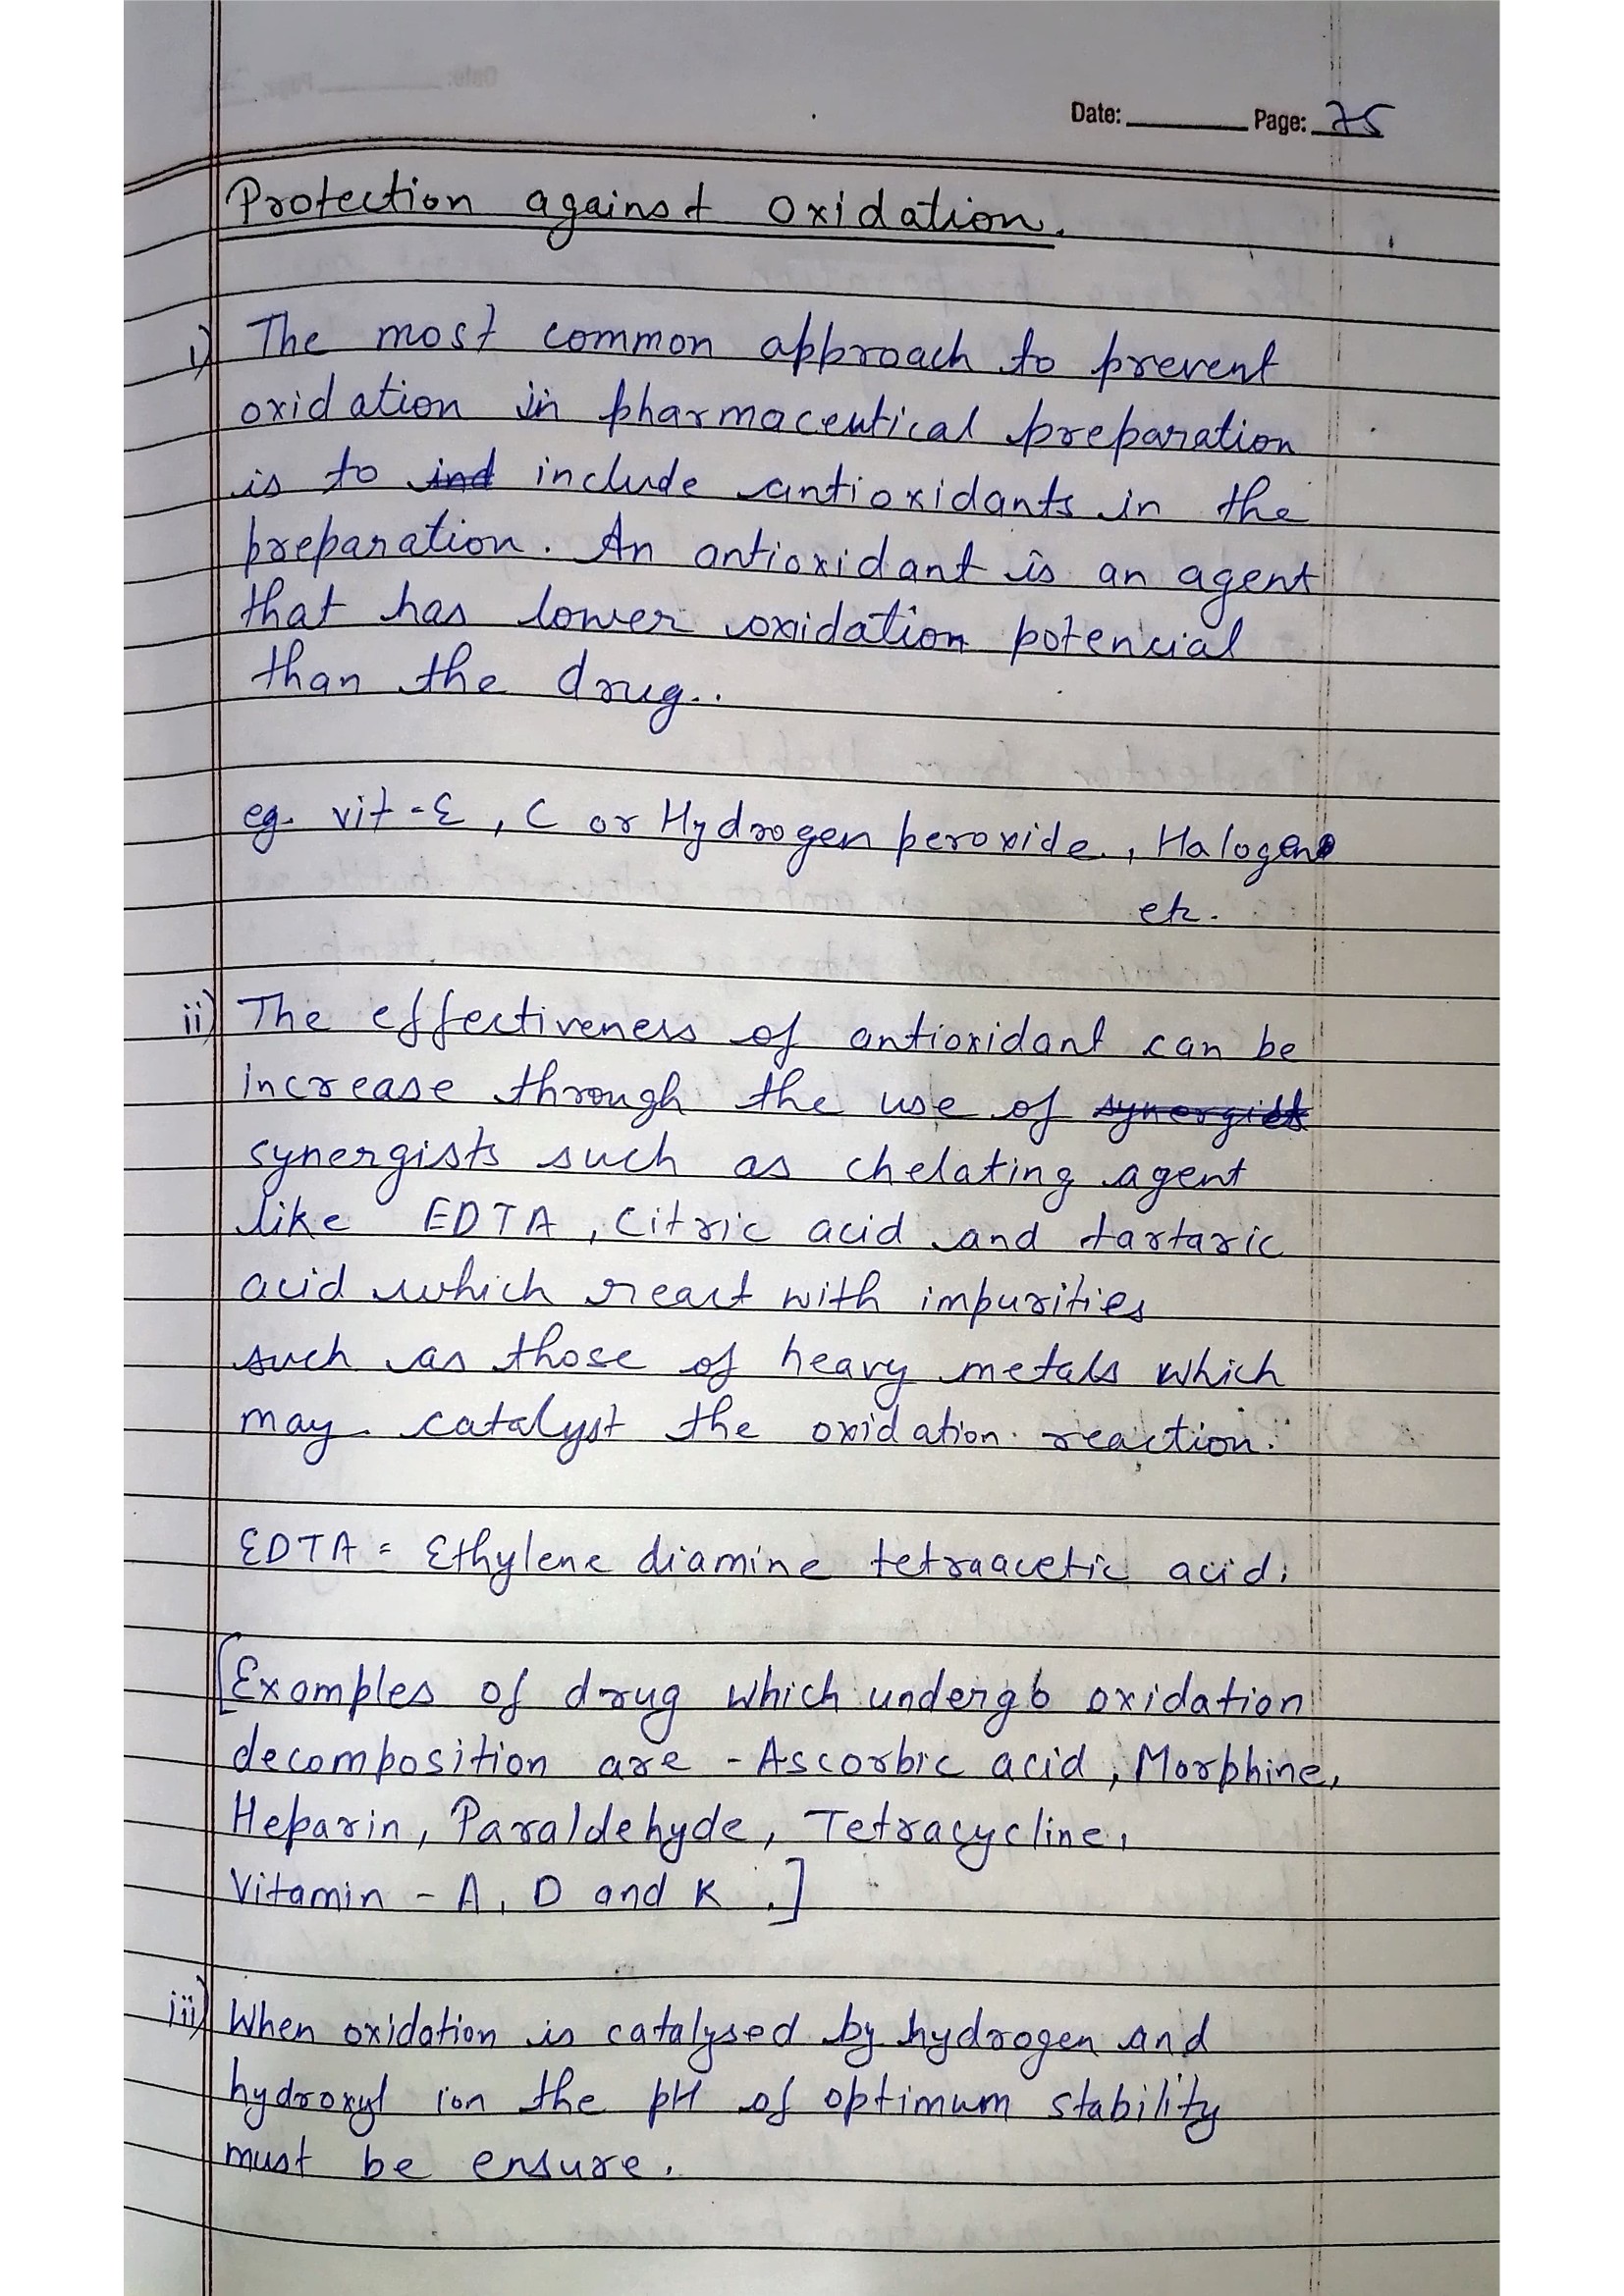 Date: ________ Page: 75
Protection against oxidation.
i) The most common approach to prevent
oxidation in pharmaceutical preparation
is to ind include antioxidants in the
preparation. An antioxidant is an agent
that has lower oxidation potencial
than the drug..
eg. vit-E, C or Hydrogen peroxide, Halogens
etc.
ii) The effectiveness of antioxidant can be
increase through the use of synergists
synergists such as chelating agent
like EDTA, Citric acid and tartaric
acid which react with impurities
such as those of heavy metals which
may catalyst the oxidation reaction.
EDTA = Ethylene diamine tetraacetic acid.
[Examples of drug which undergo oxidation
decomposition are - Ascorbic acid, Morphine,
Heparin, Paraldehyde, Tetracycline,
Vitamin - A, D and K.]
iii) When oxidation is catalysed by hydrogen and
hydroxyl ion the pH of optimum stability
must be ensure.